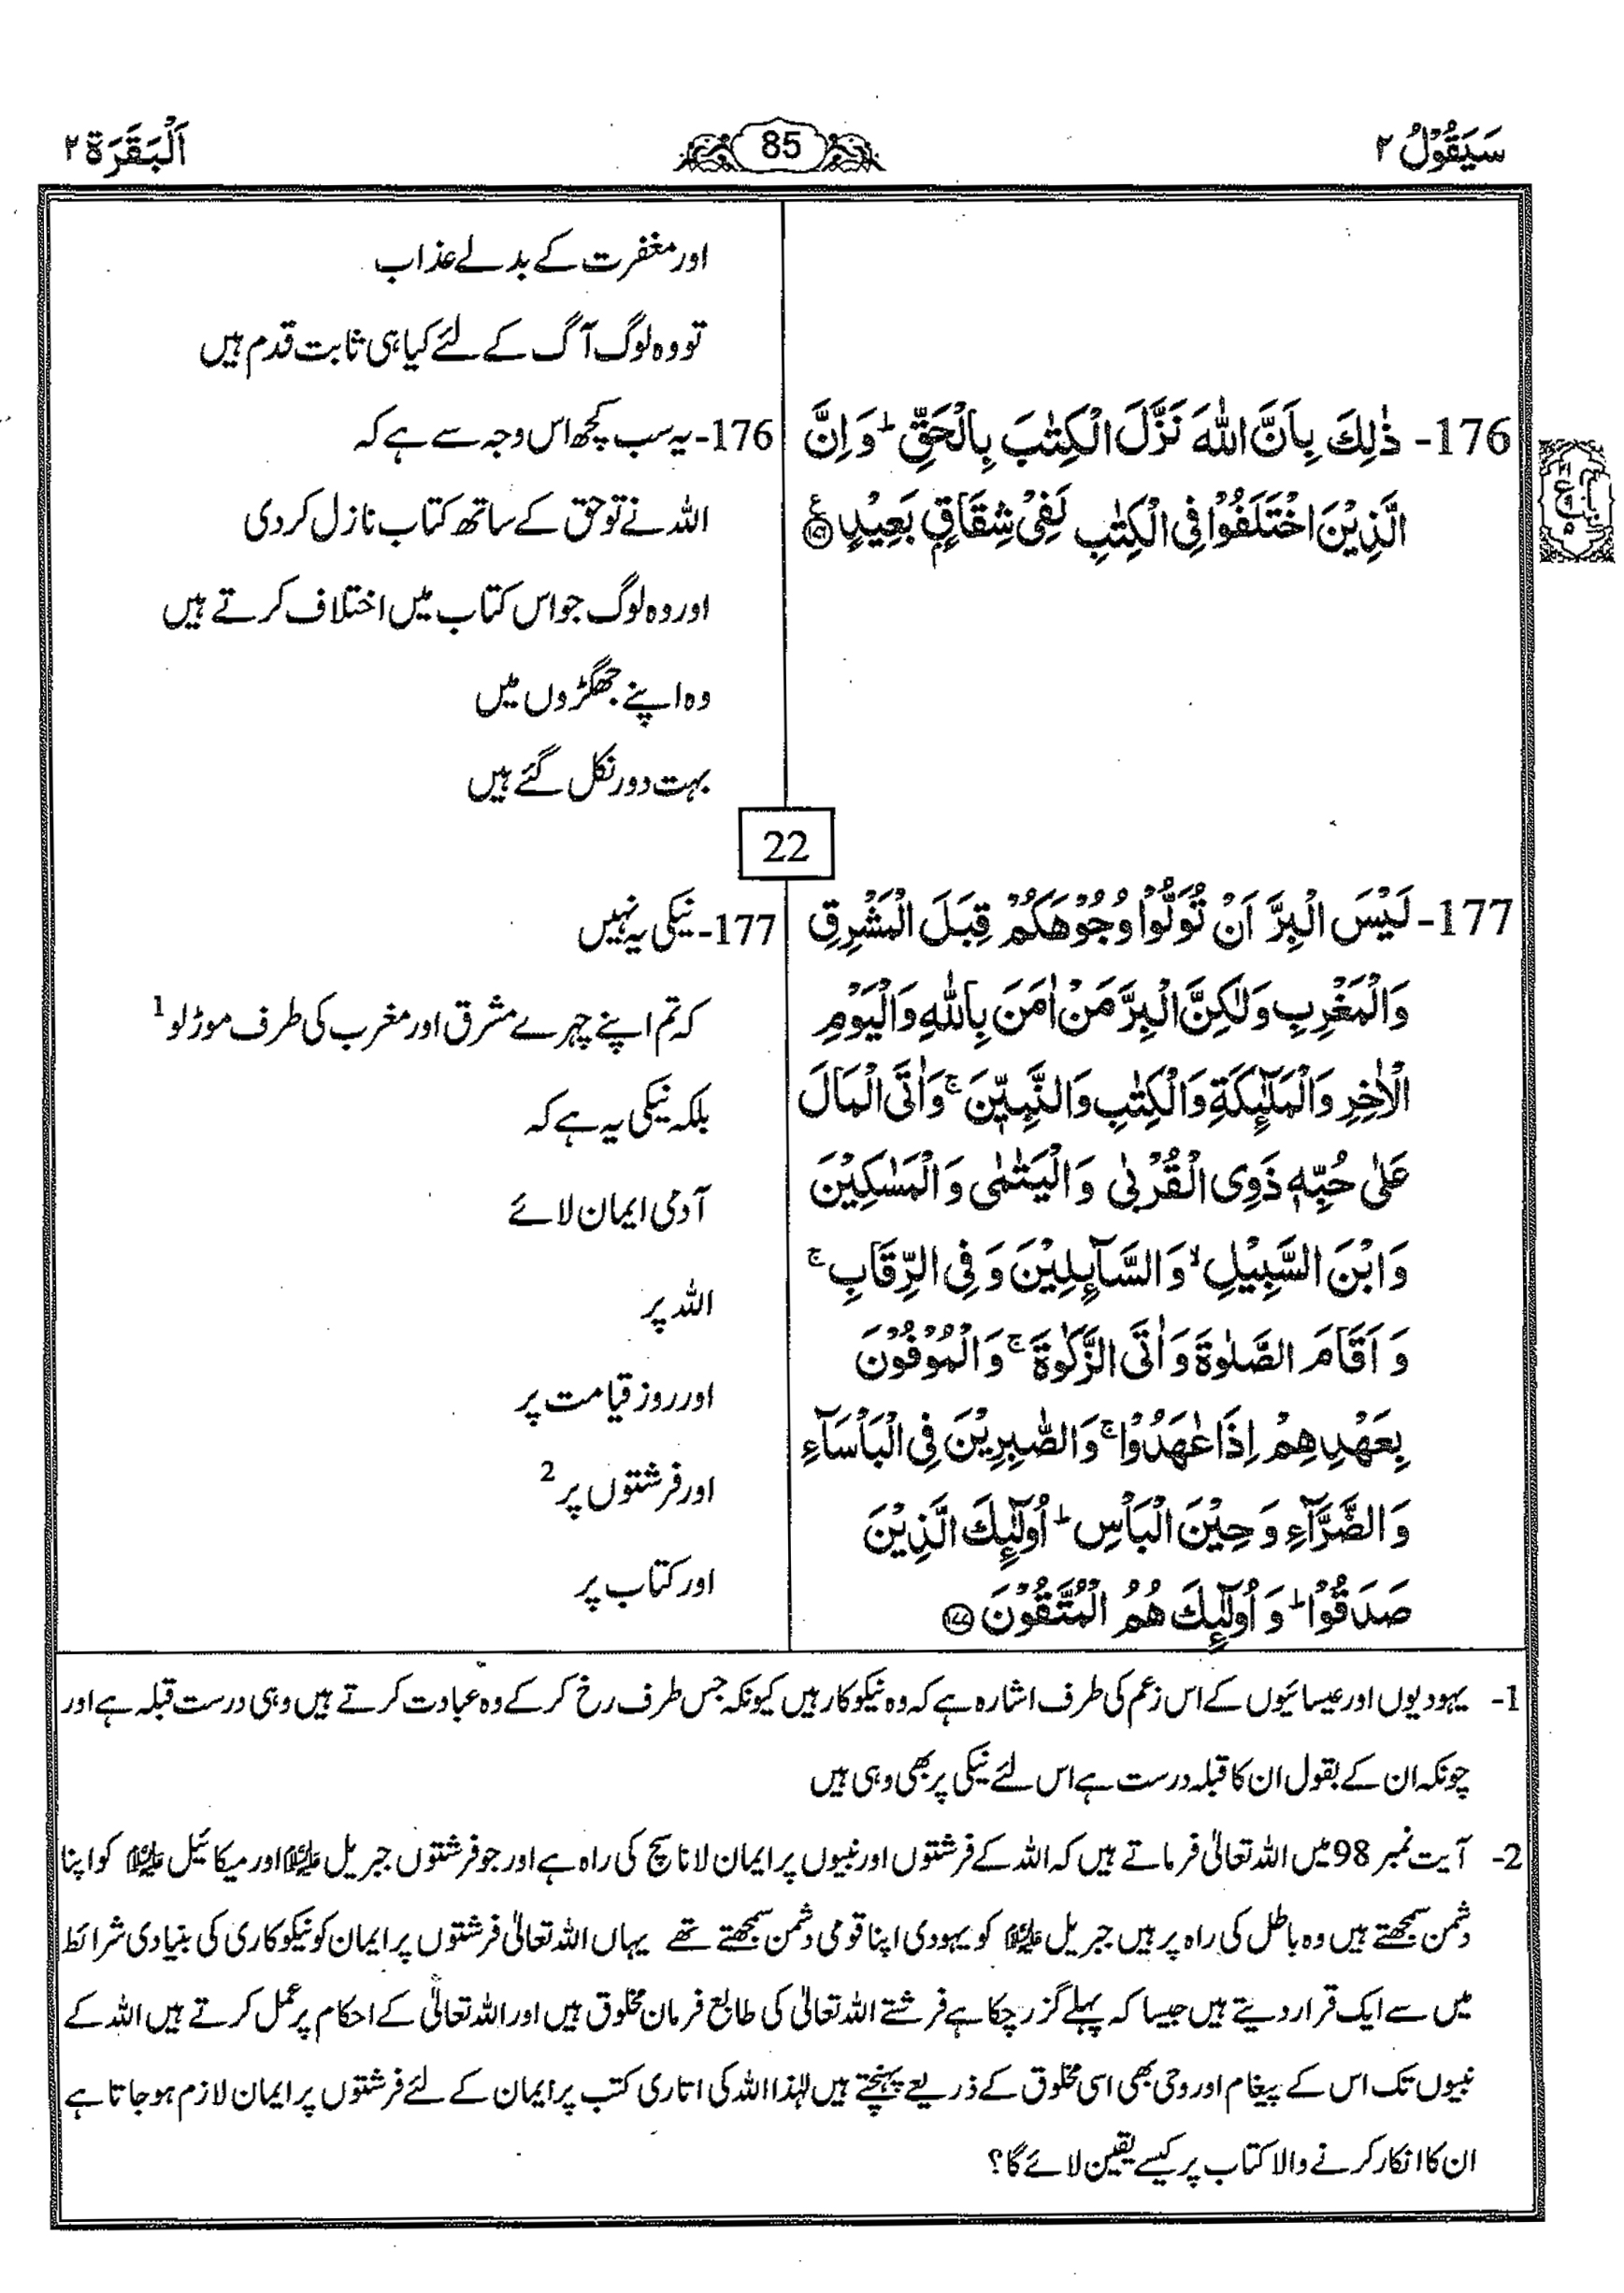 سَيَقُوْلُ ٢
85
اَلْبَقَرَة ٢
176- ذٰلِكَ بِاَنَّ اللّٰهَ نَزَّلَ الْكِتٰبَ بِالْحَقِّ ؕ وَ اِنَّ
الَّذِيْنَ اخْتَلَفُوْا فِی الْكِتٰبِ لَفِیْ شِقَاقٍۭ بَعِيْدٍ ﴿۱۷۶﴾ ع
177- لَيْسَ الْبِرَّ اَنْ تُوَلُّوْا وُجُوْهَكُمْ قِبَلَ الْمَشْرِقِ
وَالْمَغْرِبِ وَلٰكِنَّ الْبِرَّ مَنْ اٰمَنَ بِاللّٰهِ وَالْيَوْمِ
الْاٰخِرِ وَالْمَلٰٓئِكَةِ وَالْكِتٰبِ وَالنَّبِيّٖنَ ۚ وَاٰتَی الْمَالَ
عَلٰی حُبِّهٖ ذَوِی الْقُرْبٰی وَالْيَتٰمٰی وَالْمَسٰكِيْنَ
وَابْنَ السَّبِيْلِ ۙ وَالسَّآئِلِيْنَ وَ فِی الرِّقَابِ ۚ
وَ اَقَامَ الصَّلٰوةَ وَ اٰتَی الزَّكٰوةَ ۚ وَالْمُوْفُوْنَ
بِعَهْدِهِمْ اِذَا عٰهَدُوْا ۚ وَالصّٰبِرِيْنَ فِی الْبَاْسَآءِ
وَالضَّرَّآءِ وَ حِيْنَ الْبَاْسِ ؕ اُولٰٓئِكَ الَّذِيْنَ
صَدَقُوْا ؕ وَ اُولٰٓئِكَ هُمُ الْمُتَّقُوْنَ ﴿۱۷۷﴾
اور مغفرت کے بدلے عذاب
تو وہ لوگ آگ کے لئے کیا ہی ثابت قدم ہیں
176- یہ سب کچھ اس وجہ سے ہے کہ
اللہ نے تو حق کے ساتھ کتاب نازل کر دی
اور وہ لوگ جو اس کتاب میں اختلاف کرتے ہیں
وہ اپنے جھگڑوں میں
بہت دور نکل گئے ہیں
22
177- نیکی یہ نہیں
کہ تم اپنے چہرے مشرق اور مغرب کی طرف موڑ لو 1
بلکہ نیکی یہ ہے کہ
آدمی ایمان لائے
اللہ پر
اور روز قیامت پر
اور فرشتوں پر 2
اور کتاب پر
1- یہودیوں اور عیسائیوں کے اس زعم کی طرف اشارہ ہے کہ وہ نیکوکار ہیں کیونکہ جس طرف رخ کر کے وہ عبادت کرتے ہیں وہی درست قبلہ ہے اور
چونکہ ان کے بقول ان کا قبلہ درست ہے اس لئے نیکی پر بھی وہی ہیں
2- آیت نمبر 98 میں اللہ تعالیٰ فرماتے ہیں کہ اللہ کے فرشتوں اور نبیوں پر ایمان لانا سچ کی راہ ہے اور جو فرشتوں جبریل علیہ السلام اور میکائیل علیہ السلام کو اپنا
دشمن سمجھتے ہیں وہ باطل کی راہ پر ہیں جبریل علیہ السلام کو یہودی اپنا قومی دشمن سمجھتے تھے یہاں اللہ تعالیٰ فرشتوں پر ایمان کو نیکوکاری کی بنیادی شرائط
میں سے ایک قرار دیتے ہیں جیسا کہ پہلے گزر چکا ہے فرشتے اللہ تعالیٰ کی طابع فرمان مخلوق ہیں اور اللہ تعالیٰ کے احکام پر عمل کرتے ہیں اللہ کے
نبیوں تک اس کے پیغام اور وحی بھی اسی مخلوق کے ذریعے پہنچتے ہیں لہٰذا اللہ کی اتاری کتب پر ایمان کے لئے فرشتوں پر ایمان لازم ہو جاتا ہے
ان کا انکار کرنے والا کتاب پر کیسے یقین لائے گا؟